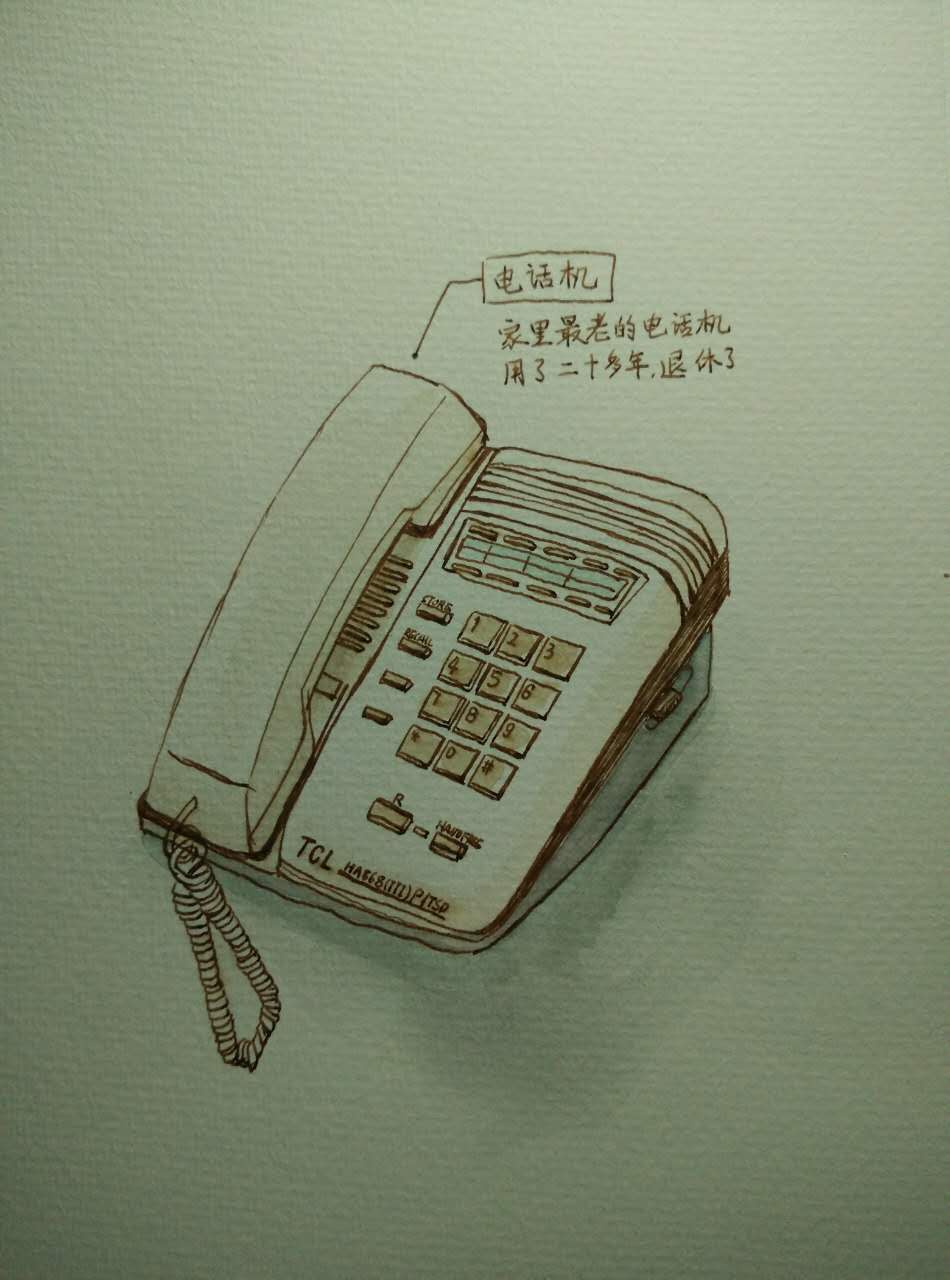 电话机
家里最老的电话机
用了二十多年,退休了
STORE
RECALL
1 2 3
4 5 6
7 8 9
* 0 #
R
HANDFREE
TCL HA868(III)P/TSD